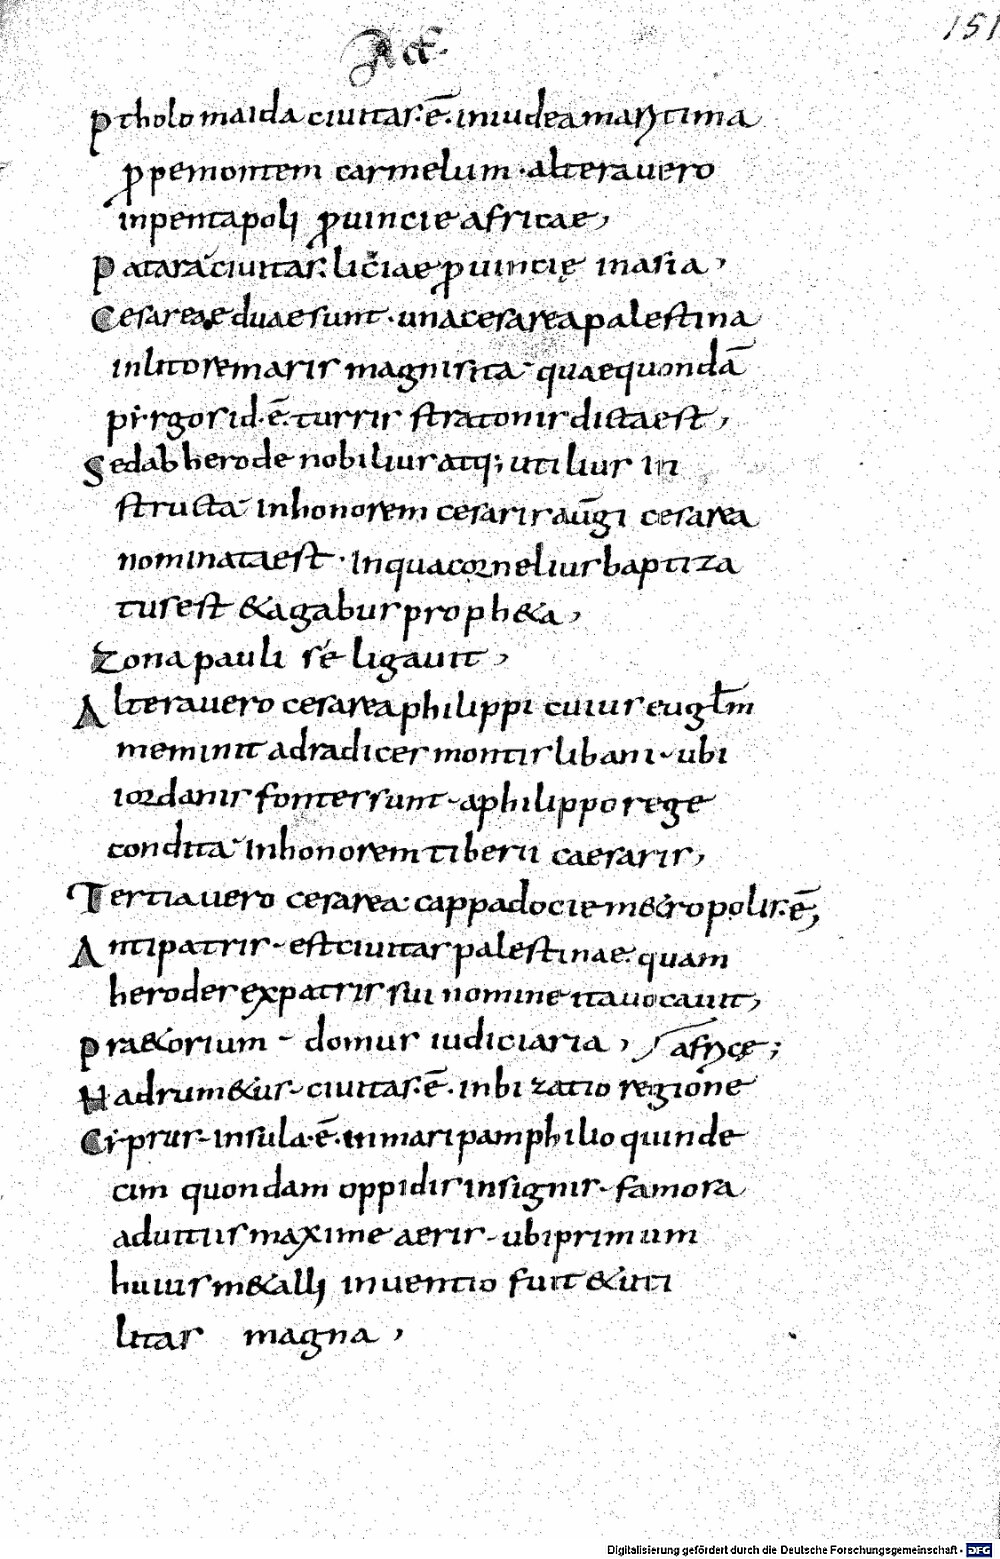 151
Act.
Ptholomaida ciuitas·ē·iniudea maritima
ꝓpemontem carmelum·altera uero
inpentapoli ꝓuincie africae,
Patara ciuitas·liciae ꝓuincię inasia,
Cesareae duae sunt·una cesarea palestina
inlitore maris magni sita quae quondā
pirgos id·ē·turris stratonis dicta est,
Sed ab herode nobilius atq; utilius in
structa inhonorem cesaris aūgi cesarea
nominata est·Inqua cornelius baptiza
tus est &agabus proph&a,
Zona pauli se ligauit,
Altera uero cesarea philippi cuius euglm̄
meminit adradices montis libani·ubi
iordanis fontes sunt·aphilippo rege
condita inhonorem tiberii caesaris,
Tertia uero cesarea cappadocie m&ropolis·ē,
Antipatris·est ciuitas palestinae·quam
herodes expatris sui nomine ita uocauit,
Pra&orium – domus iudiciaria, africę;
Hadrum&us·ciuitas·ē·inbizatio regione
Ciprus·insula·ē·inmari pamphilio quinde
cim quondam oppidis insignis·famosa
adutiis maxime aeris·ubi primum
huius m&alli inuentio fuit &uti
litas magna,
Digitalisierung gefördert durch die Deutsche Forschungsgemeinschaft - DFG